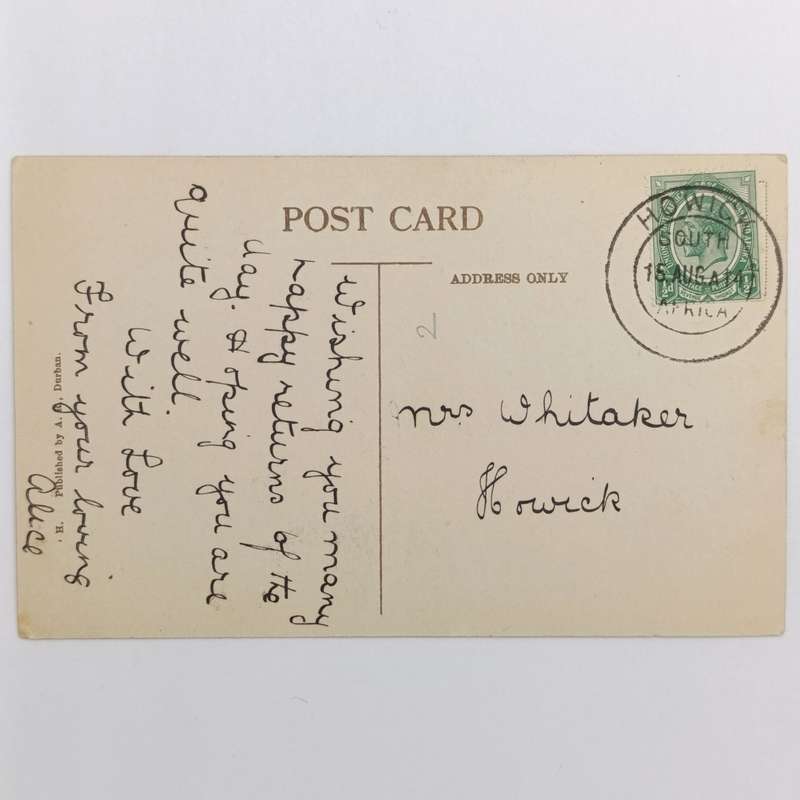 POST CARD
ADDRESS ONLY
HOWICK
SOUTH
15 AUG A 14
AFRICA
2
Wishing you many
happy returns of the
day. Hoping you are
quite well.
With Love
From your loving
Alice
Mrs Whitaker
Howick
Published by A. , Durban.